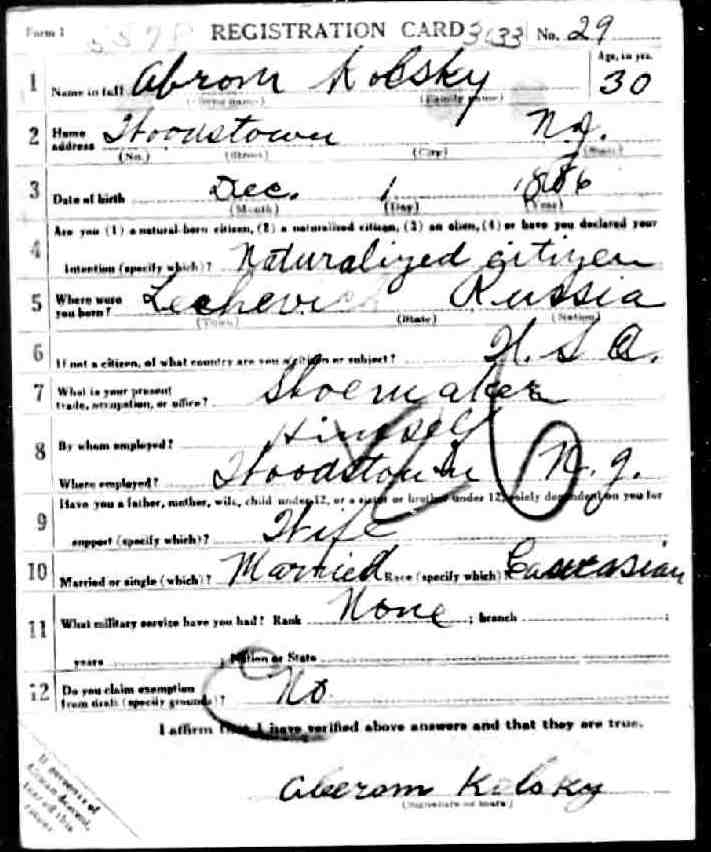 Form 1 5578 REGISTRATION CARD 3633 No. 29
1 Name in full Abrom Kolsky Age, in yrs. 30
(Given name) (Family name)
2 Home address Woodstown N.J.
(No.) (Street) (City) (State)
3 Date of birth Dec. 1 1886
(Month) (Day) (Year)
4 Are you (1) a natural-born citizen, (2) a naturalized citizen, (3) an alien, (4) or have you declared your
intention (specify which)? Naturalized citizen
5 Where were you born? Lechevich Russia
(Town) (State) (Nation)
6 If not a citizen, of what country are you a citizen or subject? U. S. A.
7 What is your present trade, occupation, or office? Shoemaker
8 By whom employed? Himself
Where employed? Woodstown N.J.
9 Have you a father, mother, wife, child under 12, or a sister or brother under 12, solely dependent on you for
support (specify which)? Wife
10 Married or single (which)? Married Race (specify which)? Caucasian
11 What military service have you had? Rank None ; branch ;
years ; Nation or State
12 Do you claim exemption from draft (specify grounds)? No
I affirm that I have verified above answers and that they are true.
Aberom Kolsky
(Signature or mark)
If person is of African descent, tear off this corner.